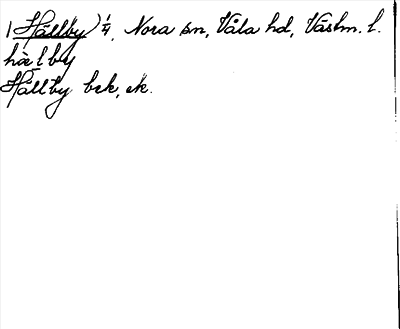 (Hällby) 1/4, Nora sn, Våla hd, Västm. l.
hälby
Hällby bek, ek.